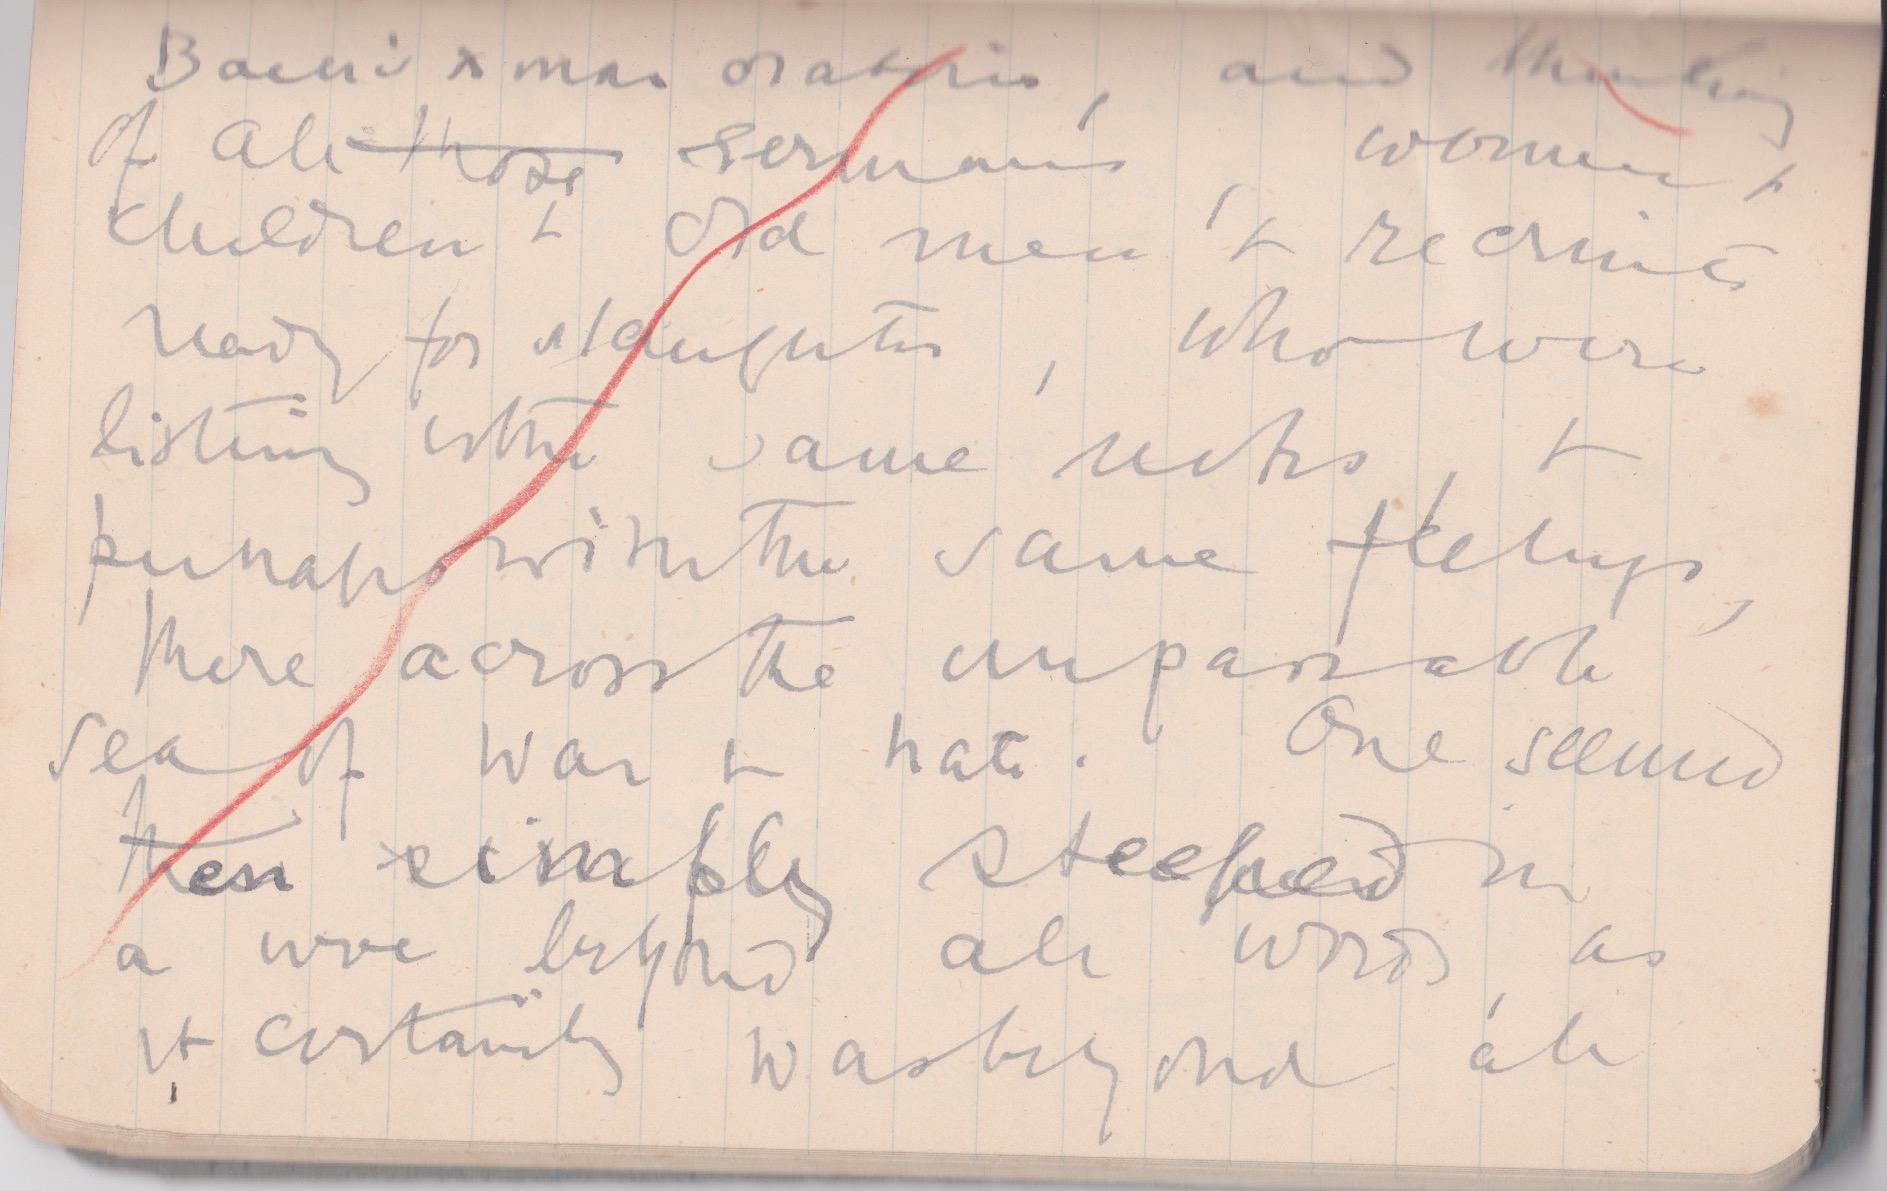 Bach's Xmas oratorio, and thinking
of all those Germans, women &
children & old men & recruits
ready for slaughter, who were
listening to the same notes, &
perhaps with the same feelings,
there across the unpassable
sea of war & hate. One seemed
then simply steeped in
a woe beyond all words, as
it certainly was beyond all